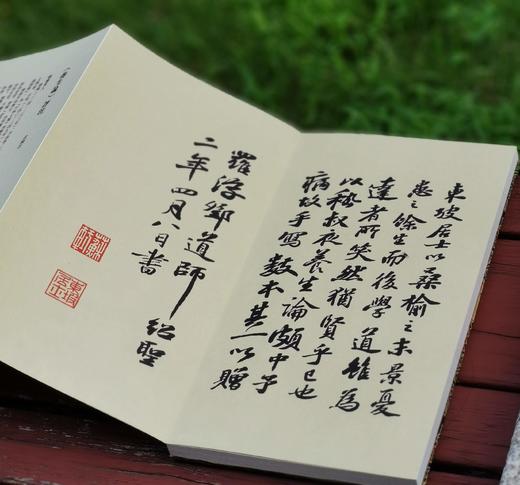 東坡居士以桑榆之末景憂
患之餘生而後學道雖為
達者所笑然猶賢乎已也
以嵇叔夜養生論頗中予
病故手寫數本其一以贈
羅浮鄧道師 紹聖
二年四月八日書
蘇軾
東坡居士